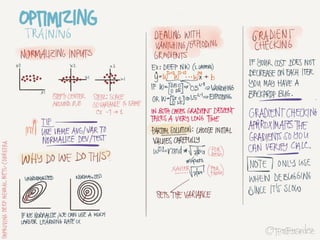 OPTIMIZING
TRAINING
NORMALIZING INPUTS
STEP 1: CENTER
AROUND 0,0
STEP 2: SCALE
SO VARIANCE IS SAME
-1 → 1
TIP
USE SAME AVG/VAR TO
NORMALIZE DEV/TEST
WHY DO WE DO THIS?
UNNORMALIZED
NORMALIZED
IF WE NORMALIZE, WE CAN USE A MUCH
LARGER LEARNING RATE α
DEALING WITH
VANISHING/EXPLODING
GRADIENTS
EX: DEEP NW (L LAYERS)
IF W=
→ VANISHING
OR W=
→ EXPLODING
IN BOTH CASES GRADIENT DESCENT
TAKES A VERY LONG TIME
PARTIAL SOLUTION: CHOOSE INITIAL
VALUES CAREFULLY
rand *
XAVIER
SETS THE VARIANCE
GRADIENT
CHECKING
IF YOUR COST DOES NOT
DECREASE ON EACH ITER
YOU MAY HAVE A
BACKPROP BUG.
GRADIENT CHECKING
APPROXIMATES THE
GRADIENTS SO YOU
CAN VERIFY CALC.
NOTE ONLY USE
WHEN DEBUGGING
SINCE IT'S SLOW
@TessFerrandez